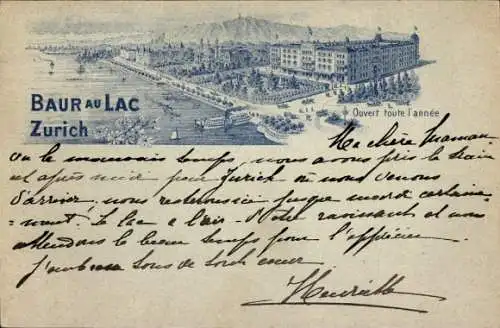 BAUR AU LAC
Zurich
Ouvert toute l'année
Ma chère Maman
Vu le mauvais temps, nous avons pris le train
cet après midi pour Zurich où nous venons
d'arriver. nous resterons ici jusque mardi certaine-
ment. Le lac a l'air d'être ravissant et nous
attendons le beau temps pour l'apprécier.
J'embrasse tous de tout coeur
Henriette